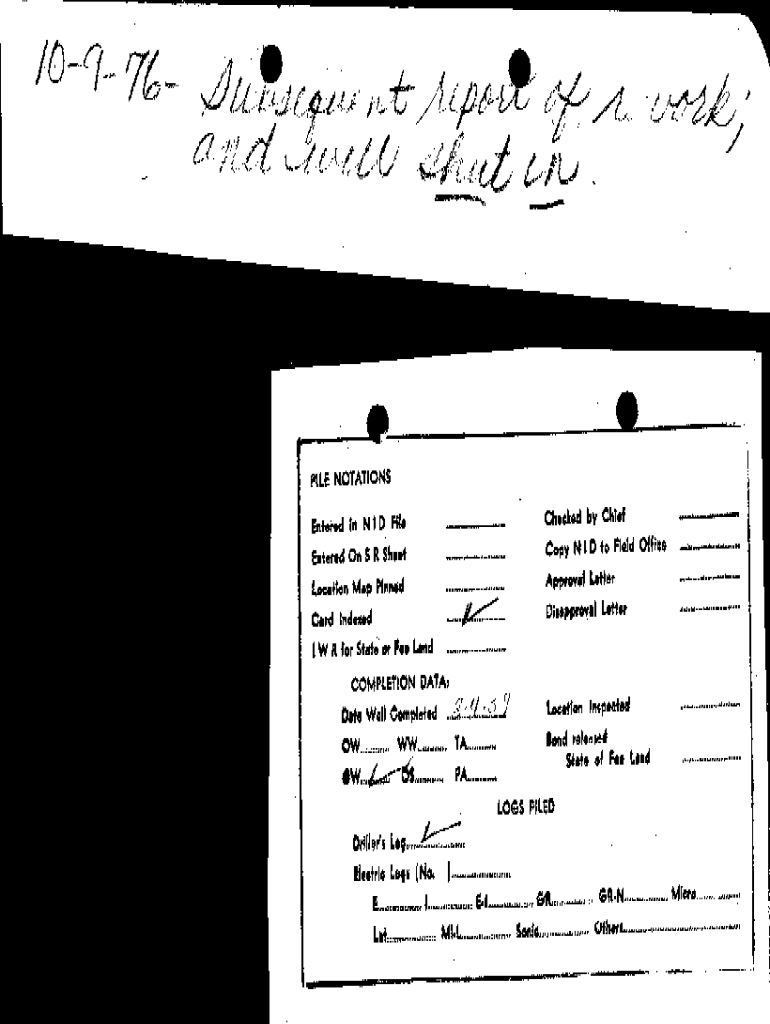 10-9-76- Subsequent report of r. work;
and will shut in.
FILE NOTATIONS
Entered in N I D File
Entered On S R Sheet
Location Map Pinned
Card Indexed ✓
I W R for State or Fee Land
Checked by Chief
Copy N I D to Field Office
Approval Letter
Disapproval Letter
COMPLETION DATA:
Date Well Completed
OW WW TA
GW ✓ OS PA
Location Inspected
Bond released
State of Fee Land
LOGS FILED
Driller's Log ✓
Electric Logs (No. )
E I E-I GR GR-N Micro
Lat Mi-L Sonic Others